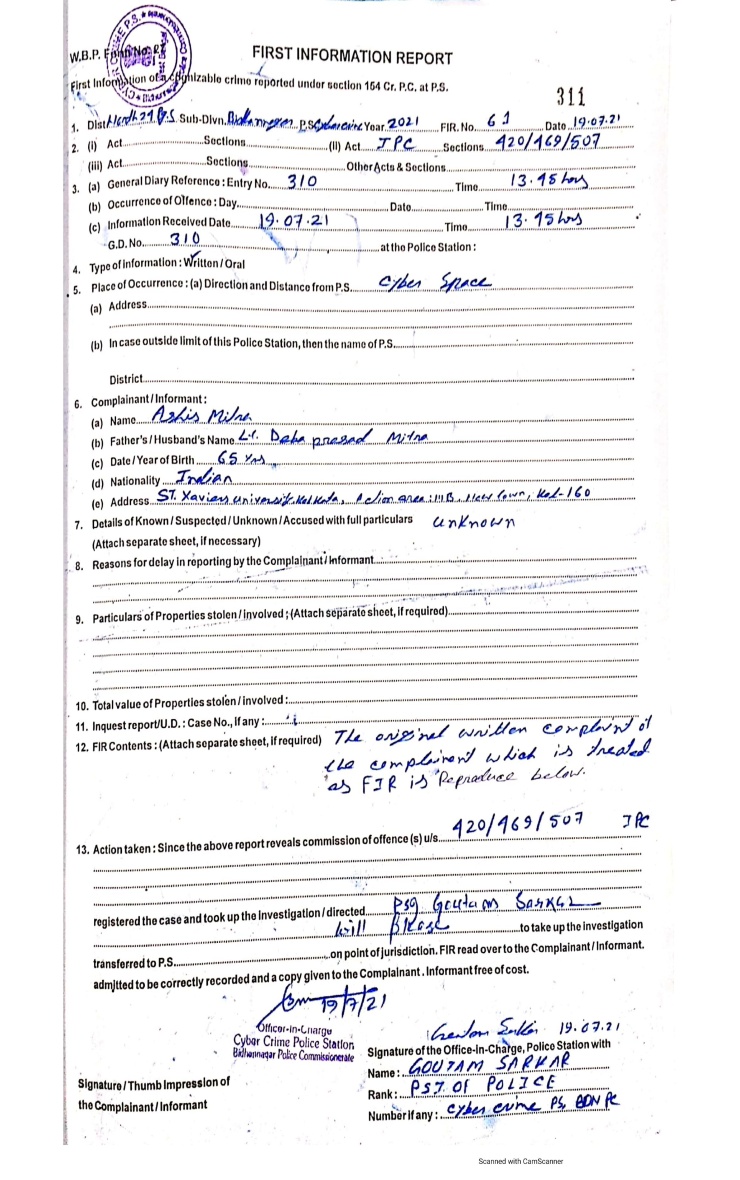 W.B.P. Form No. 27
FIRST INFORMATION REPORT
First Information of a cognizable crime reported under section 154 Cr. P.C. at P.S.
311
1. Dist. North 24 P.S Sub-Divn. Bidhannagar P.S Cybercrime Year 2021 FIR. No. 61 Date 19.07.21
2. (i) Act Sections (II) Act IPC Sections 420/469/507
(iii) Act Sections Other Acts & Sections
3. (a) General Diary Reference : Entry No. 310 Time 13.45 hrs
(b) Occurrence of Offence : Day Date Time
(c) Information Received Date 19.07.21 Time 13.45 hrs
G.D. No. 310 at the Police Station :
4. Type of information : Written / Oral
5. Place of Occurrence : (a) Direction and Distance from P.S. Cyber Space
(a) Address
(b) In case outside limit of this Police Station, then the name of P.S.
District
6. Complainant / Informant :
(a) Name Ashis Mitra
(b) Father's / Husband's Name Lt. Deba prasad Mitra
(c) Date / Year of Birth 65 yrs
(d) Nationality Indian
(e) Address ST. Xaviers University Kolkata, Action area : IIIB, New Town, Kol-160
7. Details of Known / Suspected / Unknown / Accused with full particulars unknown
(Attach separate sheet, if necessary)
8. Reasons for delay in reporting by the Complainant / Informant
9. Particulars of Properties stolen / involved ; (Attach separate sheet, if required)
10. Total value of Properties stolen / involved :
11. Inquest report/U.D. : Case No., If any :
12. FIR Contents : (Attach separate sheet, if required) The original written complaint of
the complainant which is treated
as FIR is Reproduce below.
13. Action taken : Since the above report reveals commission of offence (s) u/s 420/469/507 IPC
registered the case and took up the Investigation / directed PSI Goutam Sarkar
will please to take up the investigation
transferred to P.S. on point of jurisdiction. FIR read over to the Complainant / Informant.
admitted to be correctly recorded and a copy given to the Complainant. Informant free of cost.
19/7/21
Officer-in-Charge
Cyber Crime Police Station
Bidhannagar Police Commissionerate
Goutam Sarkar 19.07.21
Signature of the Office-In-Charge, Police Station with
Name : GOUTAM SARKAR
Rank : PSI OF POLICE
Number if any : Cyber crime PS, BDN PC
Signature / Thumb Impression of
the Complainant / Informant
Scanned with CamScanner